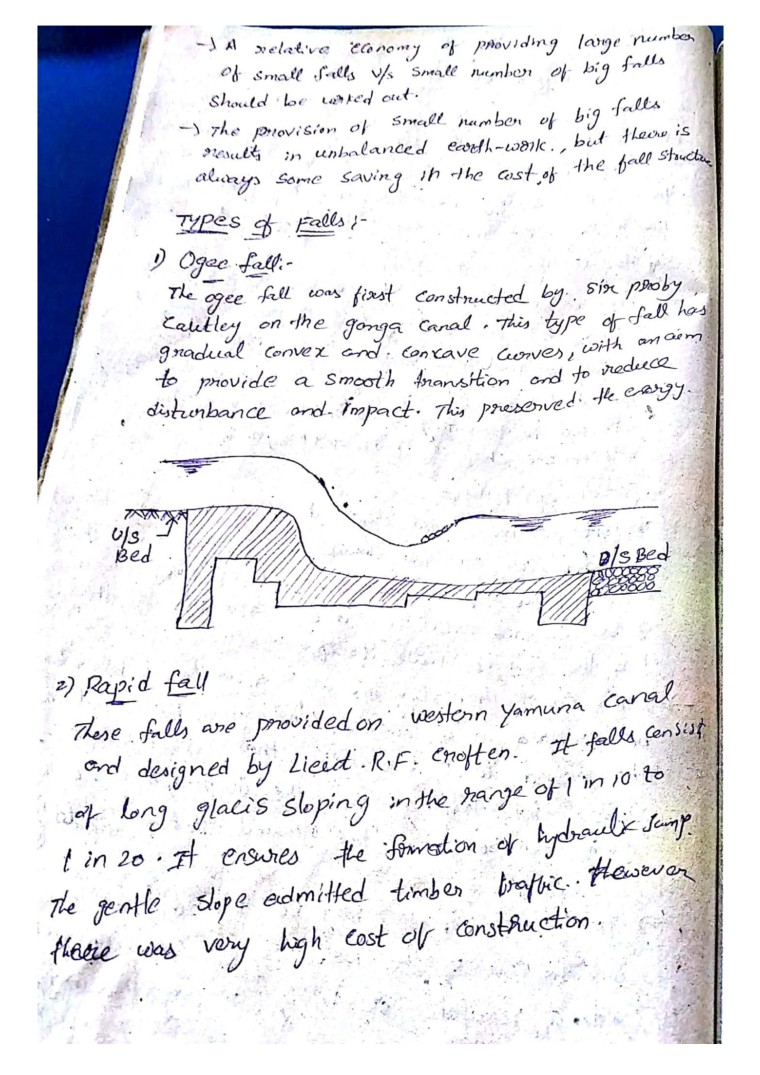 → A relative economy of providing large number
of small falls v/s small number of big falls
should be worked out.
→ The provision of small number of big falls
results in unbalanced earth-work., but there is
always some saving in the cost of the fall structure
Types of Falls :-
1) Ogee fall:-
The ogee fall was first constructed by sir proby
Cautley on the ganga canal. This type of fall has
gradual convex and concave curves, with an aim
to provide a smooth transition and to reduce
disturbance and impact. This preserved the energy.
U/S
Bed
D/S Bed
2) Rapid fall
These falls are provided on western Yamuna canal
and designed by Lieut. R.F. Croften. It falls consist
of long glacis sloping in the range of 1 in 10 to
1 in 20. It ensures the formation of hydraulic Jump.
The gentle slope admitted timber traffic. However
there was very high cost of construction.